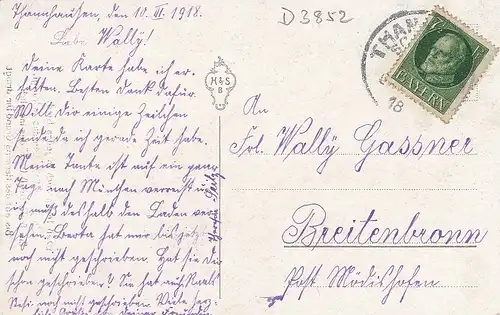 Thannhausen, den 10. VI. 1918.
Liebe Wally!
Deine Karte habe ich er-
halten. Besten Dank dafür
Will dir einige Zeilchen
senden da ich gerade Zeit habe.
Meine Tante ist auf ein paar
Tage nach München verreist u.
ich muß deshalb den Laden ver-
sehen. Berta hat mir bis jetzt
noch nicht geschrieben. Hat sie dir
schon geschrieben? Sie hat auch
noch nicht geschrieben. Viele herz-
D 3852
THAN
18
BAYERN
H&S
B
An
Frl. Wally Gassner
Breitenbronn
Post Mödishofen